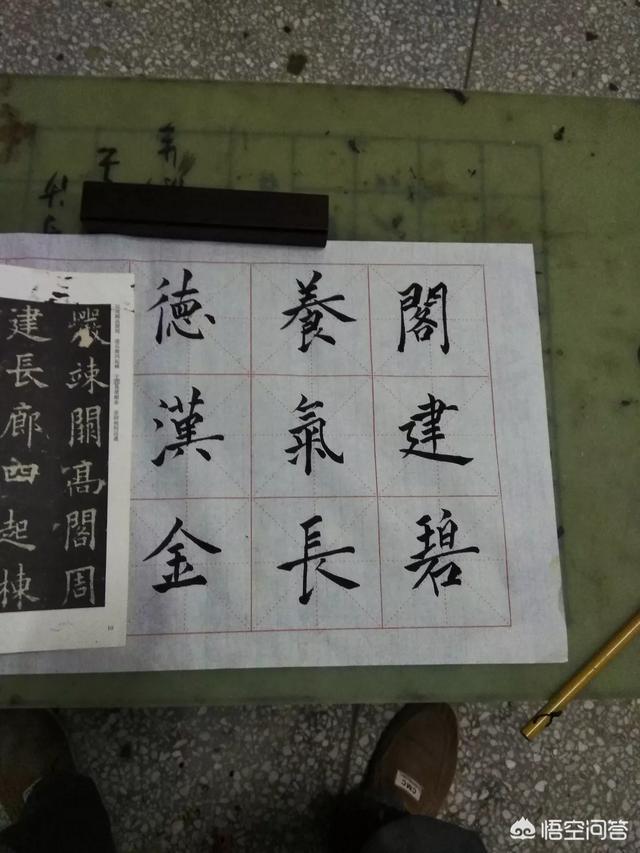 閣建碧
養氣長
德漢金
巖竦闕高閣周
建長廊四起棟
CMC
悟空问答